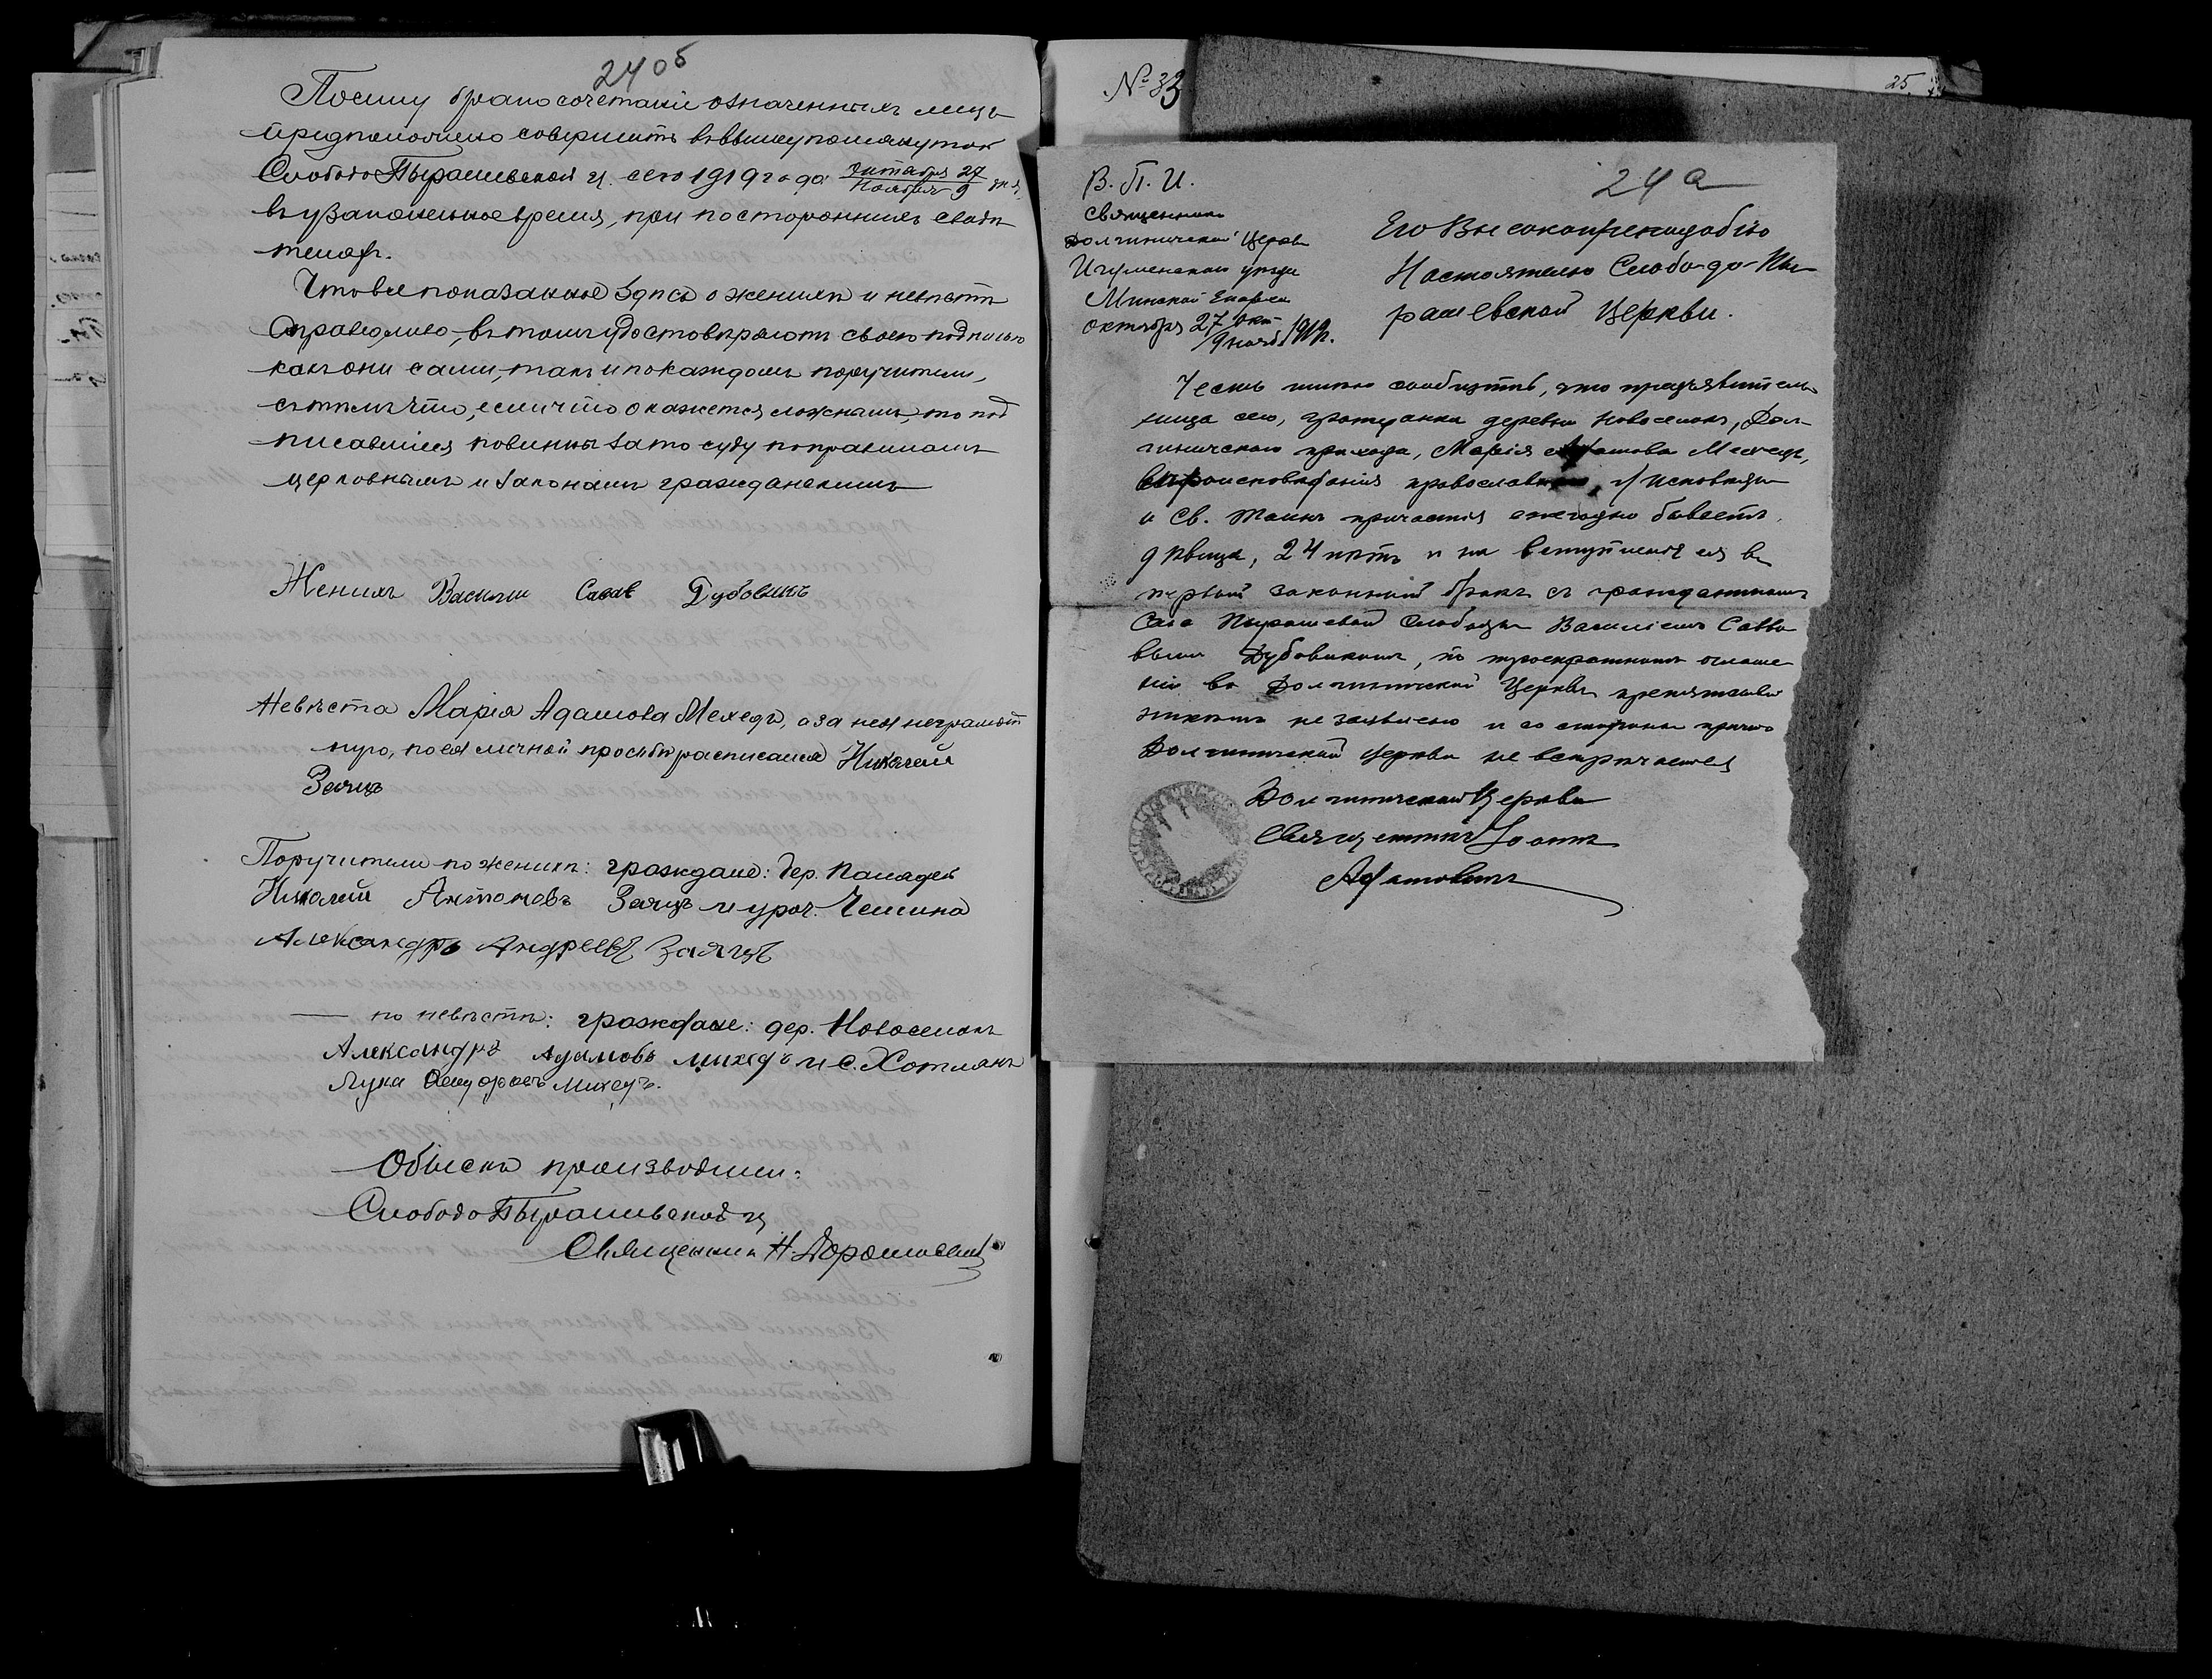 24 об
Посему бракосочетаніе означенныхъ лицъ
предположено совершить въ вышеупомянутой
Слободо Пырашевской ц. сего 1919 года Октября 27 / Ноября 9 дня,
въ узаконенное время, при постороннихъ свидѣ
теляхъ.
Что все показанное здѣсь о женихѣ и невѣстѣ
справедливо, въ томъ удостовѣряютъ своею подписью
какъ они сами, такъ и по каждомъ поручители,
съ тѣмъ что, если что окажется ложнымъ, то под
писавшіеся повинны за то суду по правиламъ
церковнымъ и законамъ гражданскимъ
Женихъ Василій Савов Дубовикъ
Невѣста Марія Адамова Мехедъ, а за нея неграмот
ную, по ея личной просьбѣ расписался Николай
Заяцъ
Поручители по женихѣ: граждане: дер.
Николай Антоновъ Заяцъ и уроч.
Александръ Андреевъ Заяцъ
— по невѣстѣ: граждане: дер. Новоселокъ
Александръ Адамовъ Михедъ и с. Хотлянъ
Лука Михедъ.
Обыскъ производили:
Слободо Пырашевской ц
Священникъ Н. Дорошевичъ
№ 33
25
24 а
В. П. И.
Священникъ
Долгиничской Церкви
Игуменскаго уѣзда
Минской Епархіи
октября 27 окт / 9 нояб 1919 г.
Его Высокопреподобію
Настоятелю Слободо-Пы-
рашевской Церкви.
Честь имѣю сообщить, что предъявитель
ница сего, гражданка деревни Новоселокъ, Дол-
гиничскаго прихода, Марія Адамова Мехедъ,
вѣроисповѣданія православнаго, у исповѣди
и Св. Таинъ причастія ежегодно бываетъ,
дѣвица, 24 лѣтъ и на вступленіе ея въ
первый законный бракъ съ гражданиномъ
села Пырашевой Слободы Василіемъ Савво
вымъ Дубовикомъ, по троекратномъ оглаше
ніи въ Долгиничской Церкви препятствій
никѣмъ не заявлено и со стороны причта
Долгиничской Церкви не встрѣчается
Долгиничской Церкви
Священникъ Іоаннъ
Адамовичъ